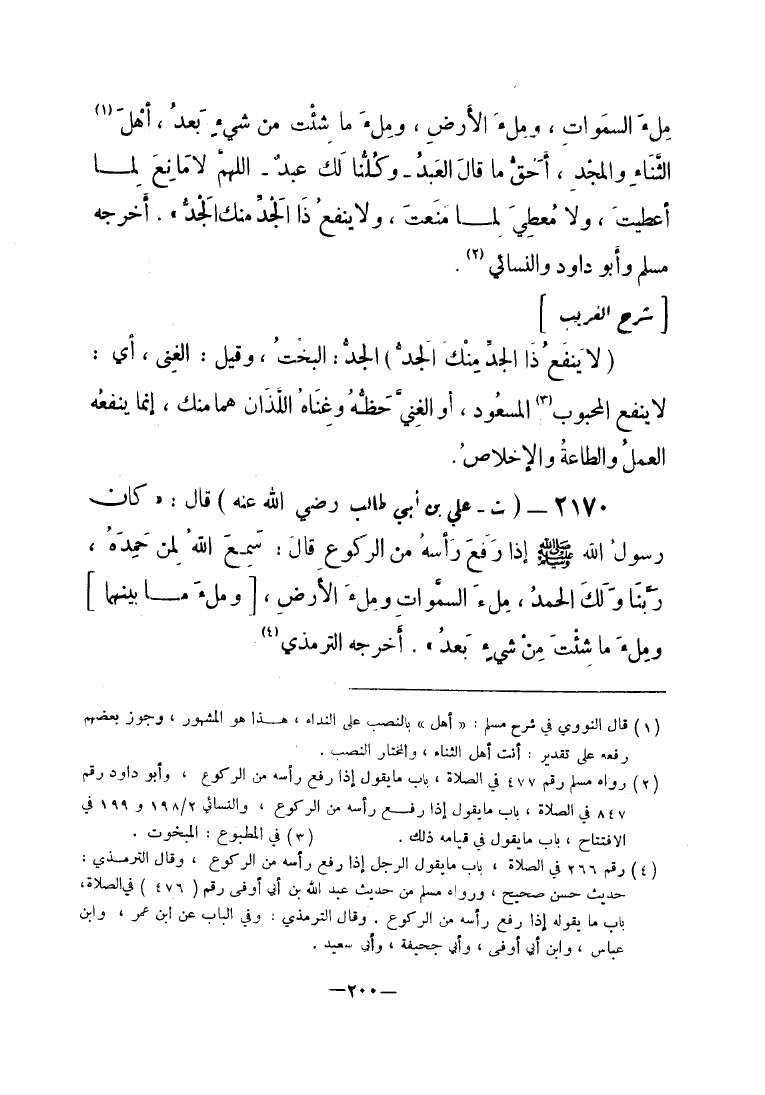 مِلءَ السمَوَاتِ ، ومِلءَ الأَرضِ ، ومِلءَ ما شئْت من شيءٍ بَعدُ ، أَهْلَ (١)
الثَّنَاءِ والمجْدِ ، أَحَقُّ ما قالَ العَبدُ ـ وكُلُّنَا لَك عبدٌ ـ اللهمَّ لا مَانِعَ لِمــا
أعطيتَ ، ولا مُعطيَ لِمــا مَنَعتَ ، ولا ينفعُ ذَا الْجَدِّ منك الجَدُّ » . أَخرجه
مسلم وأَبو داود والنسائي (٢) .
[ شرح الغريب ]
( لا يَنفَعُ ذَا الجَدِّ مِنْكَ الجَدُّ ) الجَدُّ : البخْتُ ، وقيل : الغِنى ، أي :
لا ينفع المحبوب (٣) المسعُود ، أو الغنيَّ حَظُّهُ وغِنَاهُ اللَّذَان هما منك ، إنما ينفعُه
العملُ والطاعةُ والإخلاصُ .
٢١٧٠ ــ ( ت ـ علي بن أبي طالب رضي الله عنه ) قال : « كان
رسولُ الله ﷺ إذا رَفَعَ رَأسهُ من الركوع قالَ : سَمِعَ اللهُ لِمن حَمِدَهُ ،
رَبَّنَا وَلَكَ الحمدُ ، مِلءَ السمَّواتِ ومِلءَ الأرضِ ، [ ومِلءَ مــا بينهما ]
ومِلءَ ما شِئْتَ مِنْ شيءٍ بَعدُ » . أَخرجه الترمذي (٤)
(١) قال النووي في شرح مسلم : « أهل » بالنصب على النداء ، هــذا هو المشهور ، وجوز بعضهم
رفعه على تقدير : أنت أهل الثناء ، والمختار النصب .
(٢) رواه مسلم رقم ٤٧٧ في الصلاة ، باب ما يقول إذا رفع رأسه من الركوع ، وأبو داود رقم
٨٤٧ في الصلاة ، باب ما يقول إذا رفــع رأسه من الركوع ، والنسائي ١٩٨/٢ و ١٩٩ في
الافتتاح ، باب ما يقول في قيامه ذلك . (٣) في المطبوع : المبخوت .
(٤) رقم ٢٦٦ في الصلاة ، باب ما يقول الرجل إذا رفع رأسه من الركوع ، وقال الترمــذي :
حديث حسن صحيح ، ورواه مسلم من حديث عبد الله بن أبي أوفى رقم ( ٤٧٦ ) في الصلاة ،
باب ما يقوله إذا رفع رأسه من الركوع . وقال الترمذي : وفي الباب عن ابن عمر ، وابن
عباس ، وابن أبي أوفى ، وأبي جحيفة ، وأبي سعيد .
ــ ٢٠٠ ــ